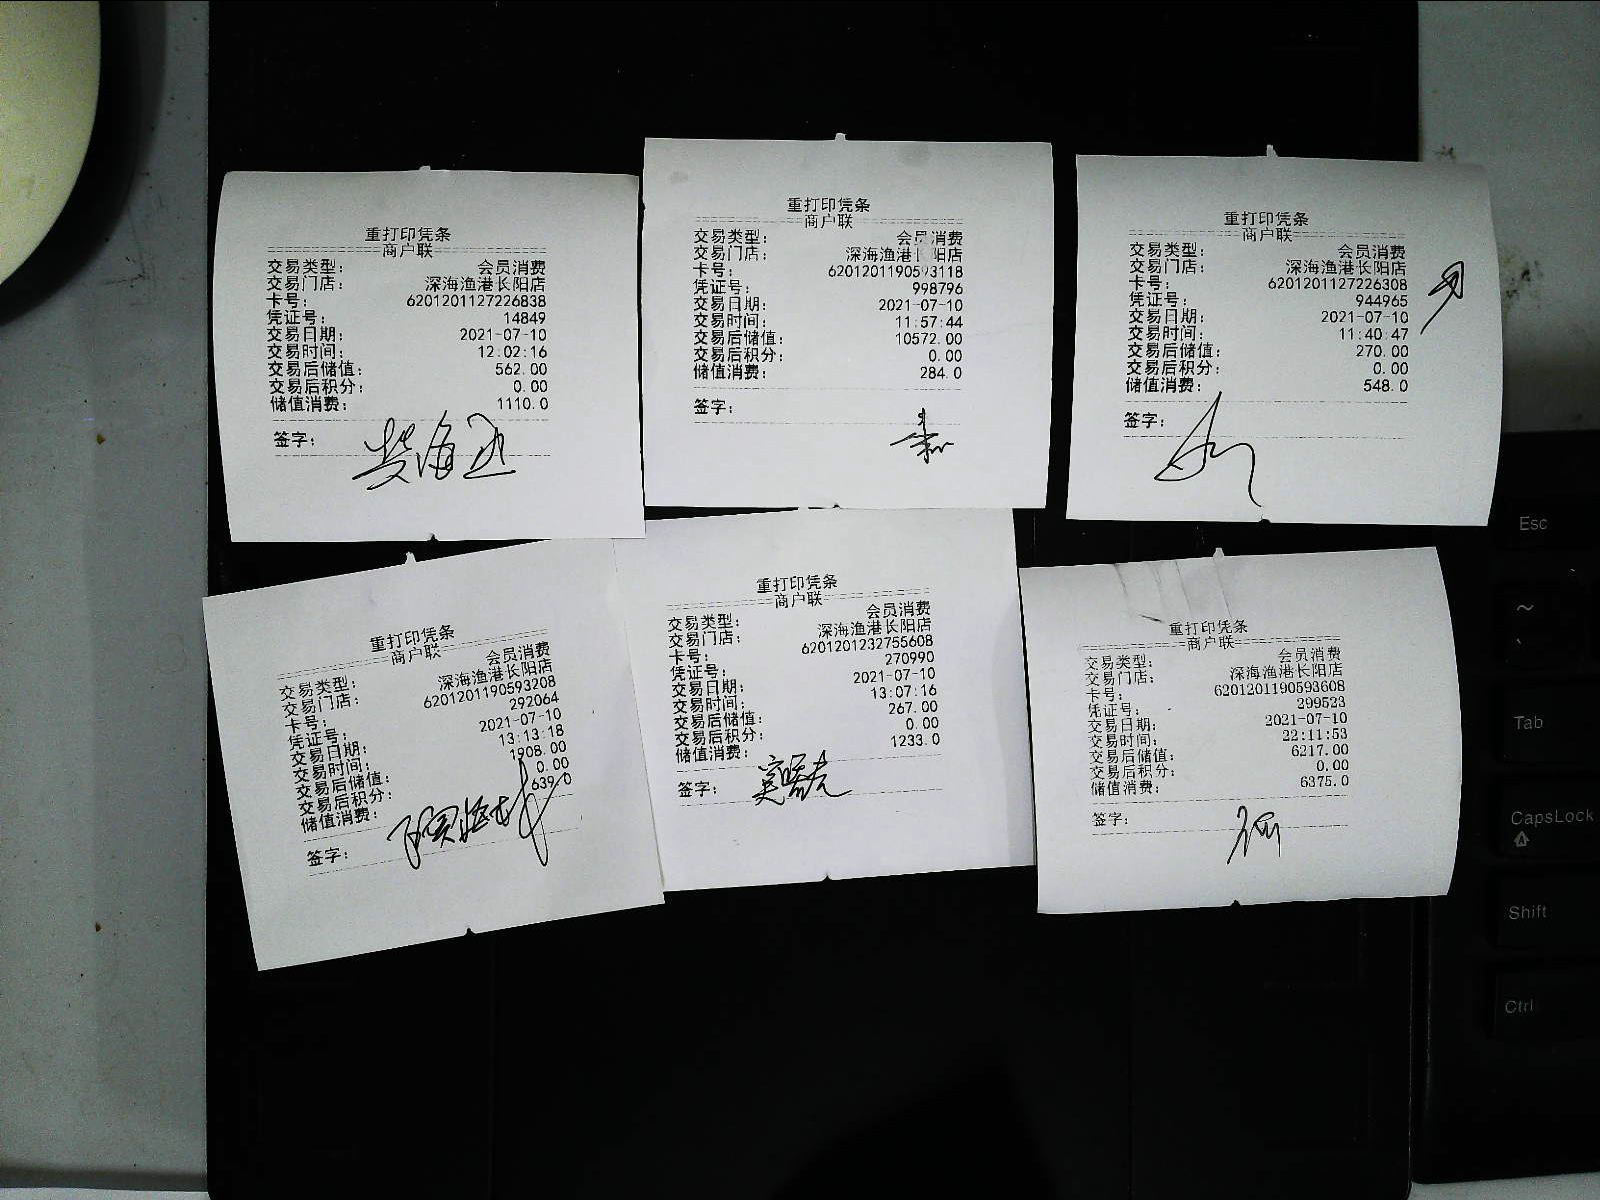 重打印凭条
商户联
交易类型： 会员消费
交易门店： 深海渔港长阳店
卡号： 6201201127226838
凭证号： 14849
交易日期： 2021-07-10
交易时间： 12:02:16
交易后储值： 562.00
交易后积分： 0.00
储值消费： 1110.0
签字：
重打印凭条
商户联
交易类型： 会员消费
交易门店： 深海渔港长阳店
卡号： 6201201190593118
凭证号： 998796
交易日期： 2021-07-10
交易时间： 11:57:44
交易后储值： 10572.00
交易后积分： 0.00
储值消费： 284.0
签字：
重打印凭条
商户联
交易类型： 会员消费
交易门店： 深海渔港长阳店
卡号： 6201201127226308
凭证号： 944965
交易日期： 2021-07-10
交易时间： 11:40:47
交易后储值： 270.00
交易后积分： 0.00
储值消费： 548.0
签字：
重打印凭条
商户联
交易类型： 会员消费
交易门店： 深海渔港长阳店
卡号： 6201201190593208
凭证号： 292064
交易日期： 2021-07-10
交易时间： 13:13:18
交易后储值： 1908.00
交易后积分： 0.00
储值消费： 639.0
签字：
重打印凭条
商户联
交易类型： 会员消费
交易门店： 深海渔港长阳店
卡号： 6201201232755608
凭证号： 270990
交易日期： 2021-07-10
交易时间： 13:07:16
交易后储值： 267.00
交易后积分： 0.00
储值消费： 1233.0
签字：
重打印凭条
商户联
交易类型： 会员消费
交易门店： 深海渔港长阳店
卡号： 6201201190593608
凭证号： 299523
交易日期： 2021-07-10
交易时间： 22:11:53
交易后储值： 6217.00
交易后积分： 0.00
储值消费： 6375.0
签字：
Esc
~
Tab
CapsLock
Shift
Ctrl